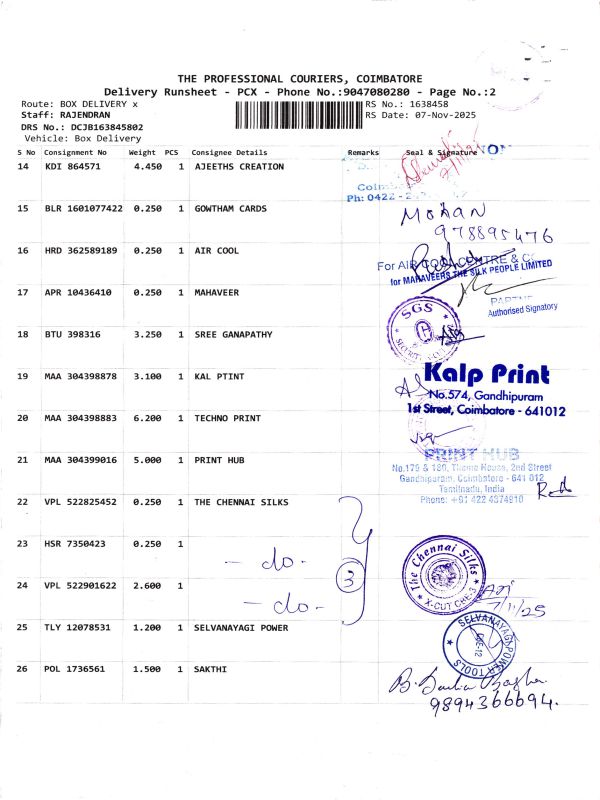 THE PROFESSIONAL COURIERS, COIMBATORE
Delivery Runsheet - PCX - Phone No.:9047080280 - Page No.:2
Route: BOX DELIVERY x
RS No.: 1638458
Staff: RAJENDRAN
RS Date: 07-Nov-2025
DRS No.: DCJB163845802
Vehicle: Box Delivery
S No Consignment No Weight PCS Consignee Details Remarks Seal & Signature
14 KDI 864571 4.450 1 AJEETHS CREATION
Ph: 0422 -
15 BLR 1601077422 0.250 1 GOWTHAM CARDS
MOHAN
978895476
16 HRD 362589189 0.250 1 AIR COOL
For AIR COOL CENTRE &
for MAHAVEERS THE SILK PEOPLE LIMITED
17 APR 10436410 0.250 1 MAHAVEER
Authorised Signatory
SGS
18 BTU 398316 3.250 1 SREE GANAPATHY
19 MAA 304398878 3.100 1 KAL PTINT
Kalp Print
No.574, Gandhipuram
1st Street, Coimbatore - 641012
20 MAA 304398883 6.200 1 TECHNO PRINT
21 MAA 304399016 5.000 1 PRINT HUB
PRINT HUB
No.179 & 180, Theme House, 2nd Street
Gandhipuram, Coimbatore - 641 012
Tamilnadu, India
Phone: +91 422 4374910
22 VPL 522825452 0.250 1 THE CHENNAI SILKS
23 HSR 7350423 0.250 1
- do -
3
The Chennai Silks
X-CUT CBE-3
24 VPL 522901622 2.600 1
- do -
7/11/25
25 TLY 12078531 1.200 1 SELVANAYAGI POWER
SELVANAYAGI POWER TOOLS
CBE-12
26 POL 1736561 1.500 1 SAKTHI
9894366694.